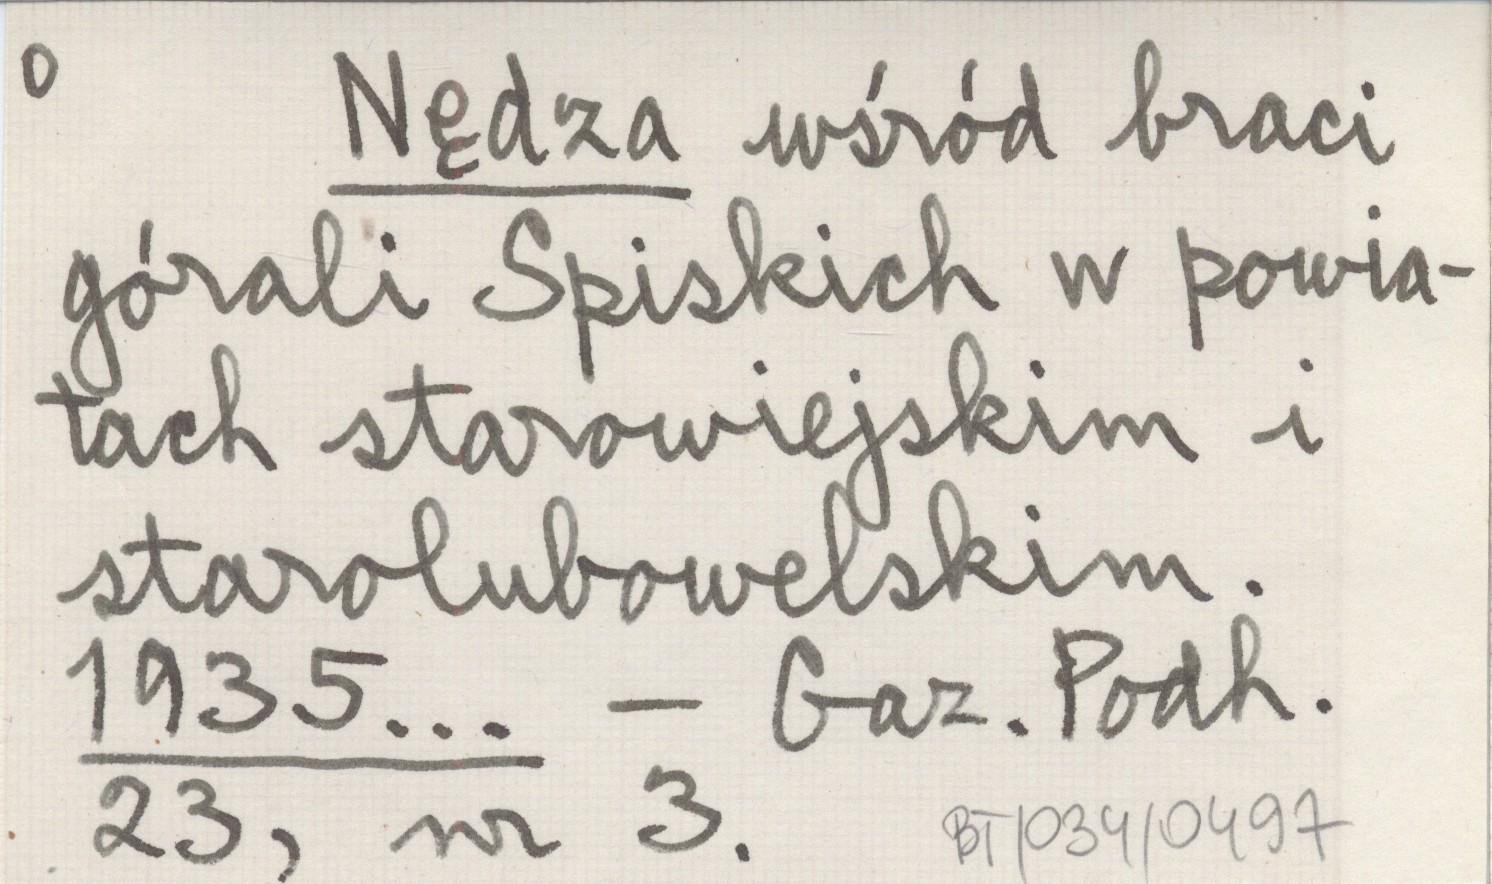 0 Nędza wśród braci
górali Spiskich w powia-
tach starowiejskim i
starolubowelskim.
1935... — Gaz. Podh.
23, nr 3.
BT/034/0497